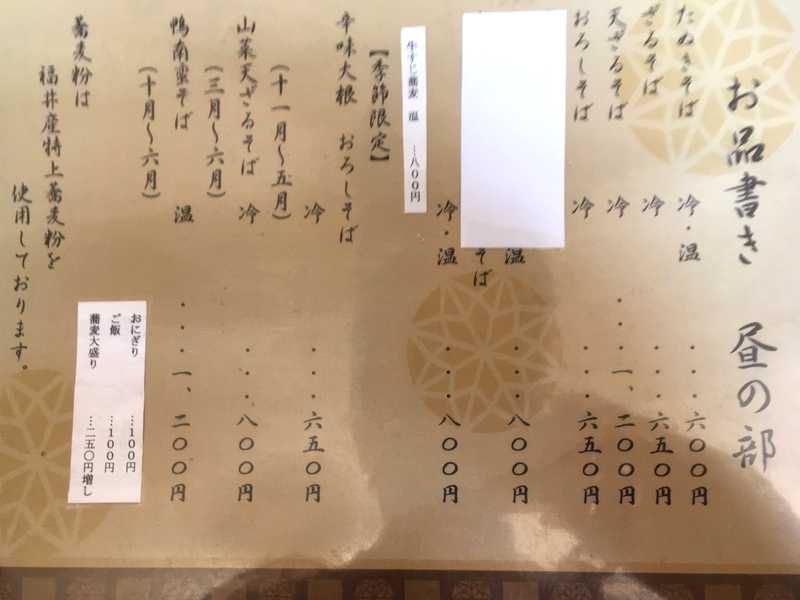 お品書き 昼の部
たぬきそば 冷・温 ・・・六〇〇円
ざるそば 冷 ・・・六五〇円
天ざるそば 冷 ・・・・一、二〇〇円
おろしそば 冷 ・・・六五〇円
温 ・・・八〇〇円
そば
冷・温 ・・・八〇〇円
牛すじ蕎麦 温 …八00円
【季節限定】
辛味大根 おろしそば
(十一月～五月) 冷 ・・・六五〇円
山菜天ざるそば 冷 ・・・八〇〇円
(三月～六月)
鴨南蛮そば 温 ・・・・一、二〇〇円
(十月～六月)
おにぎり …100円
ご飯 …100円
蕎麦大盛り …二五〇円増し
蕎麦粉は
福井産特上蕎麦粉を
使用しております。